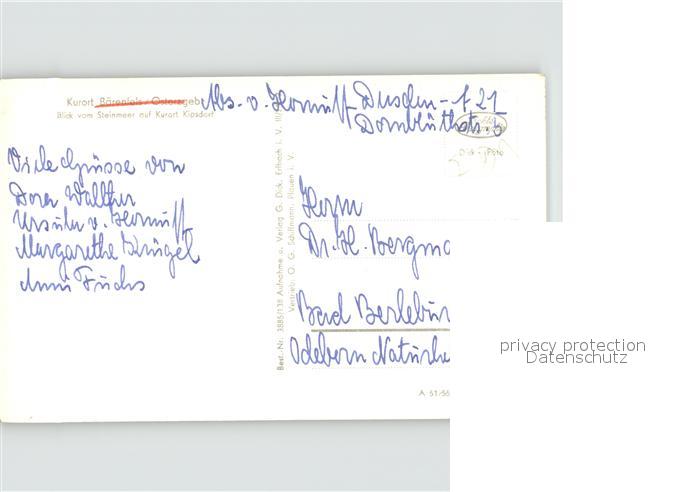 Kurort Bärenfels Osterzgeb
Blick vom Steinmeer auf Kurort Kipsdorf
Abs. v. Dresden - A 21
Dornblüthstr.
Viele Grüsse von
Dora Walther
Ursula v.
Margarethe Krügel
Anni Fuchs
Best.-Nr. 3885/138 Aufnahme u. Verlag G. Dick, Erlbach i. V. III/
Vertrieb: O. G. Schiffmann, Plauen i. V.
Herrn
Dr. H. Bergma
Bad Berlebur
Odeborn
A 51/56
privacy protection
Datenschutz